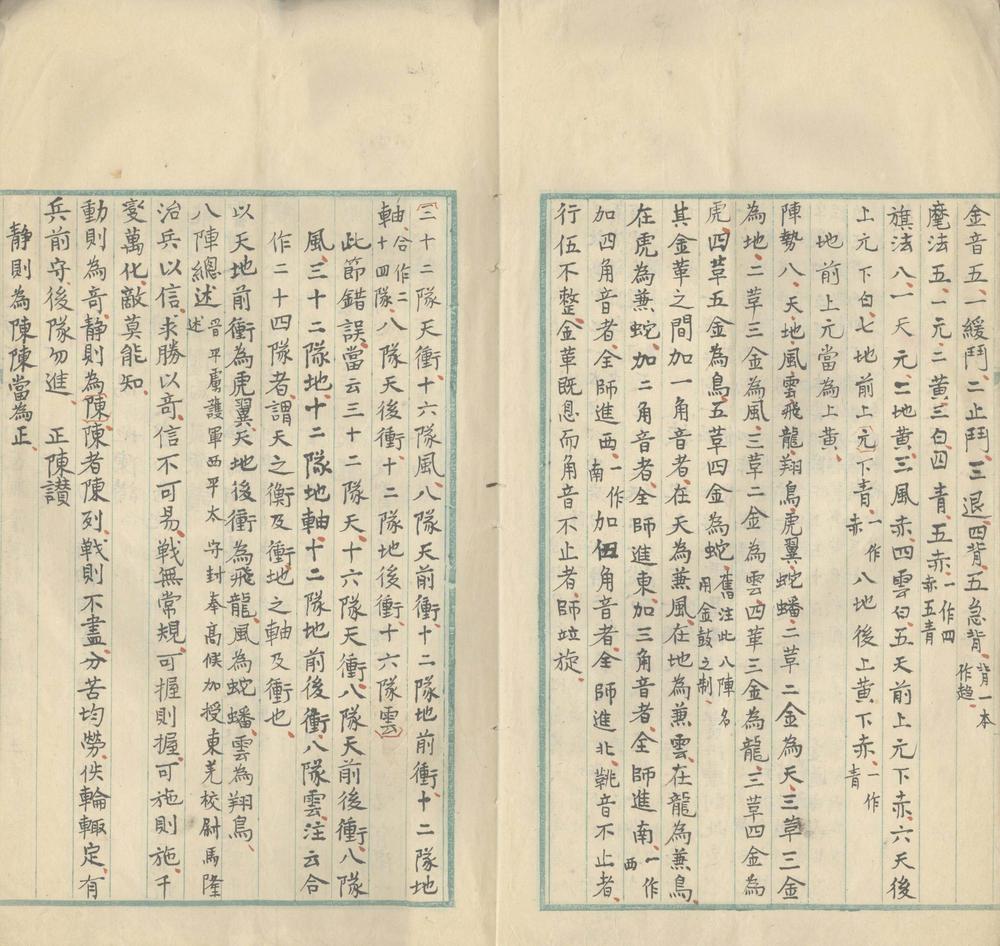 金音五、一緩鬥、二止鬥、三退、四背、五急背、背一本作趨、
麾法五、一元、二黃、三白、四青、五赤、一作四赤五青
旗法八、一天元、二地黃、三風赤、四雲白、五天前上元下赤、六天後
上元下白、七地前上元下青、一作赤八地後上黃下赤、一作青
地前上元當為上黃、
陣勢八、天、地、風、雲、飛龍、翔鳥、虎翼、蛇蟠、二革二金為天、三革三金
為地、二革三金為風、三革二金為雲、四革三金為龍、三革四金為
虎、四革五金為鳥、五革四金為蛇、舊注此八陣名用金鼓之制、
其金革之間加一角音者、在天為兼風、在地為兼雲、在龍為兼鳥、
在虎為兼蛇、加二角音者、全師進東、加三角音者、全師進南、一作西
加四角音者、全師進西、一作南加伍角音者、全師進北、鞉音不止者、
行伍不整、金革既息而角音不止者、師竝旋、
三十二隊天衝、十六隊風、八隊天前衝、十二隊地前衝、十二隊地
軸、合作二十四隊、八隊天後衝、十二隊地後衝、十六隊雲、
此節錯誤、當云三十二隊天、十六隊天衝、八隊天前後衝、八隊
風、三十二隊地、十二隊地軸、十二隊地前後衝、八隊雲、注云合
作二十四隊者、謂天之衡及衝、地之軸及衝也、
以天地前衝為虎翼、天地後衝為飛龍、風為蛇蟠、雲為翔鳥、
八陣總述 晉平虜護軍西平太守封奉高候加授東羌校尉馬隆述
治兵以信、求勝以奇、信不可易、戰無常規、可握則握、可施則施、千
變萬化、敵莫能知、
動則為奇、靜則為陳、陳者陳列、戰則不盡、分苦均勞、佚輪輒定、有
兵前守、後隊勿進、 正陳讚
靜則為陳陳當為正、